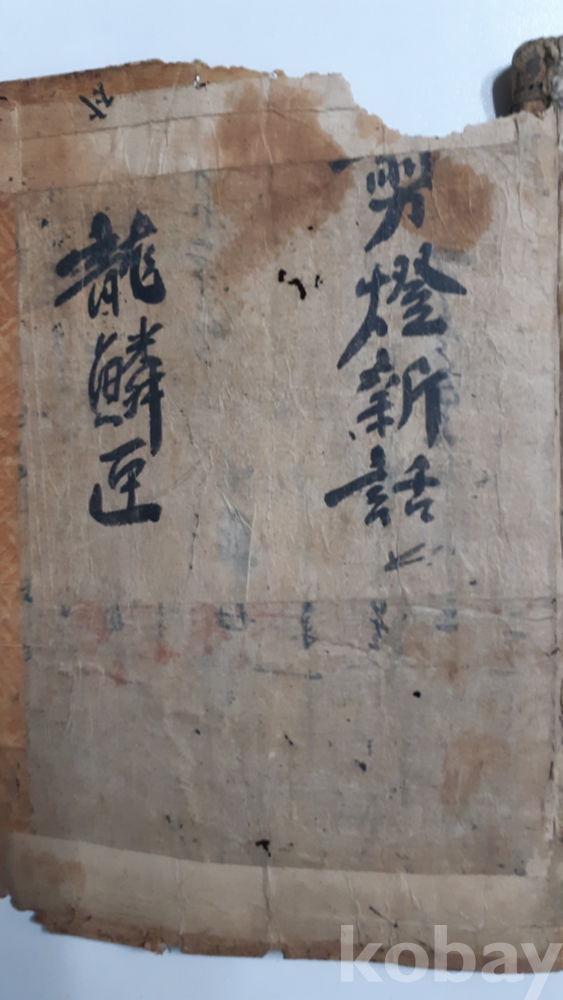 剪燈新話
龍鱗匣
kobay